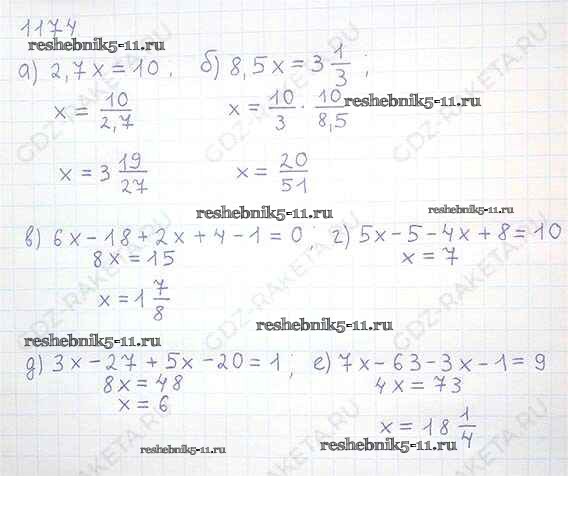 1174
reshebnik5-11.ru
а) 2,7x = 10; б) 8,5x = 3 1/3;
x = 10/2,7 x = 10/3 · 10/8,5 reshebnik5-11.ru
x = 3 19/27 x = 20/51
reshebnik5-11.ru reshebnik5-11.ru
в) 6x - 18 + 2x + 4 - 1 = 0; г) 5x - 5 - 4x + 8 = 10
8x = 15 x = 7
x = 1 7/8
reshebnik5-11.ru
reshebnik5-11.ru
д) 3x - 27 + 5x - 20 = 1; е) 7x - 63 - 3x - 1 = 9
8x = 48 4x = 73
x = 6
x = 18 1/4
reshebnik5-11.ru reshebnik5-11.ru
GDZ-RAKETA.RU
GDZ-RAKETA.RU
GDZ-RAKETA.RU
GDZ-RAKETA.RU
GDZ-RAKETA.RU
GDZ-RAKETA.RU
GDZ-RAKETA.RU
GDZ-RAKETA.RU
GDZ-RAKETA.RU